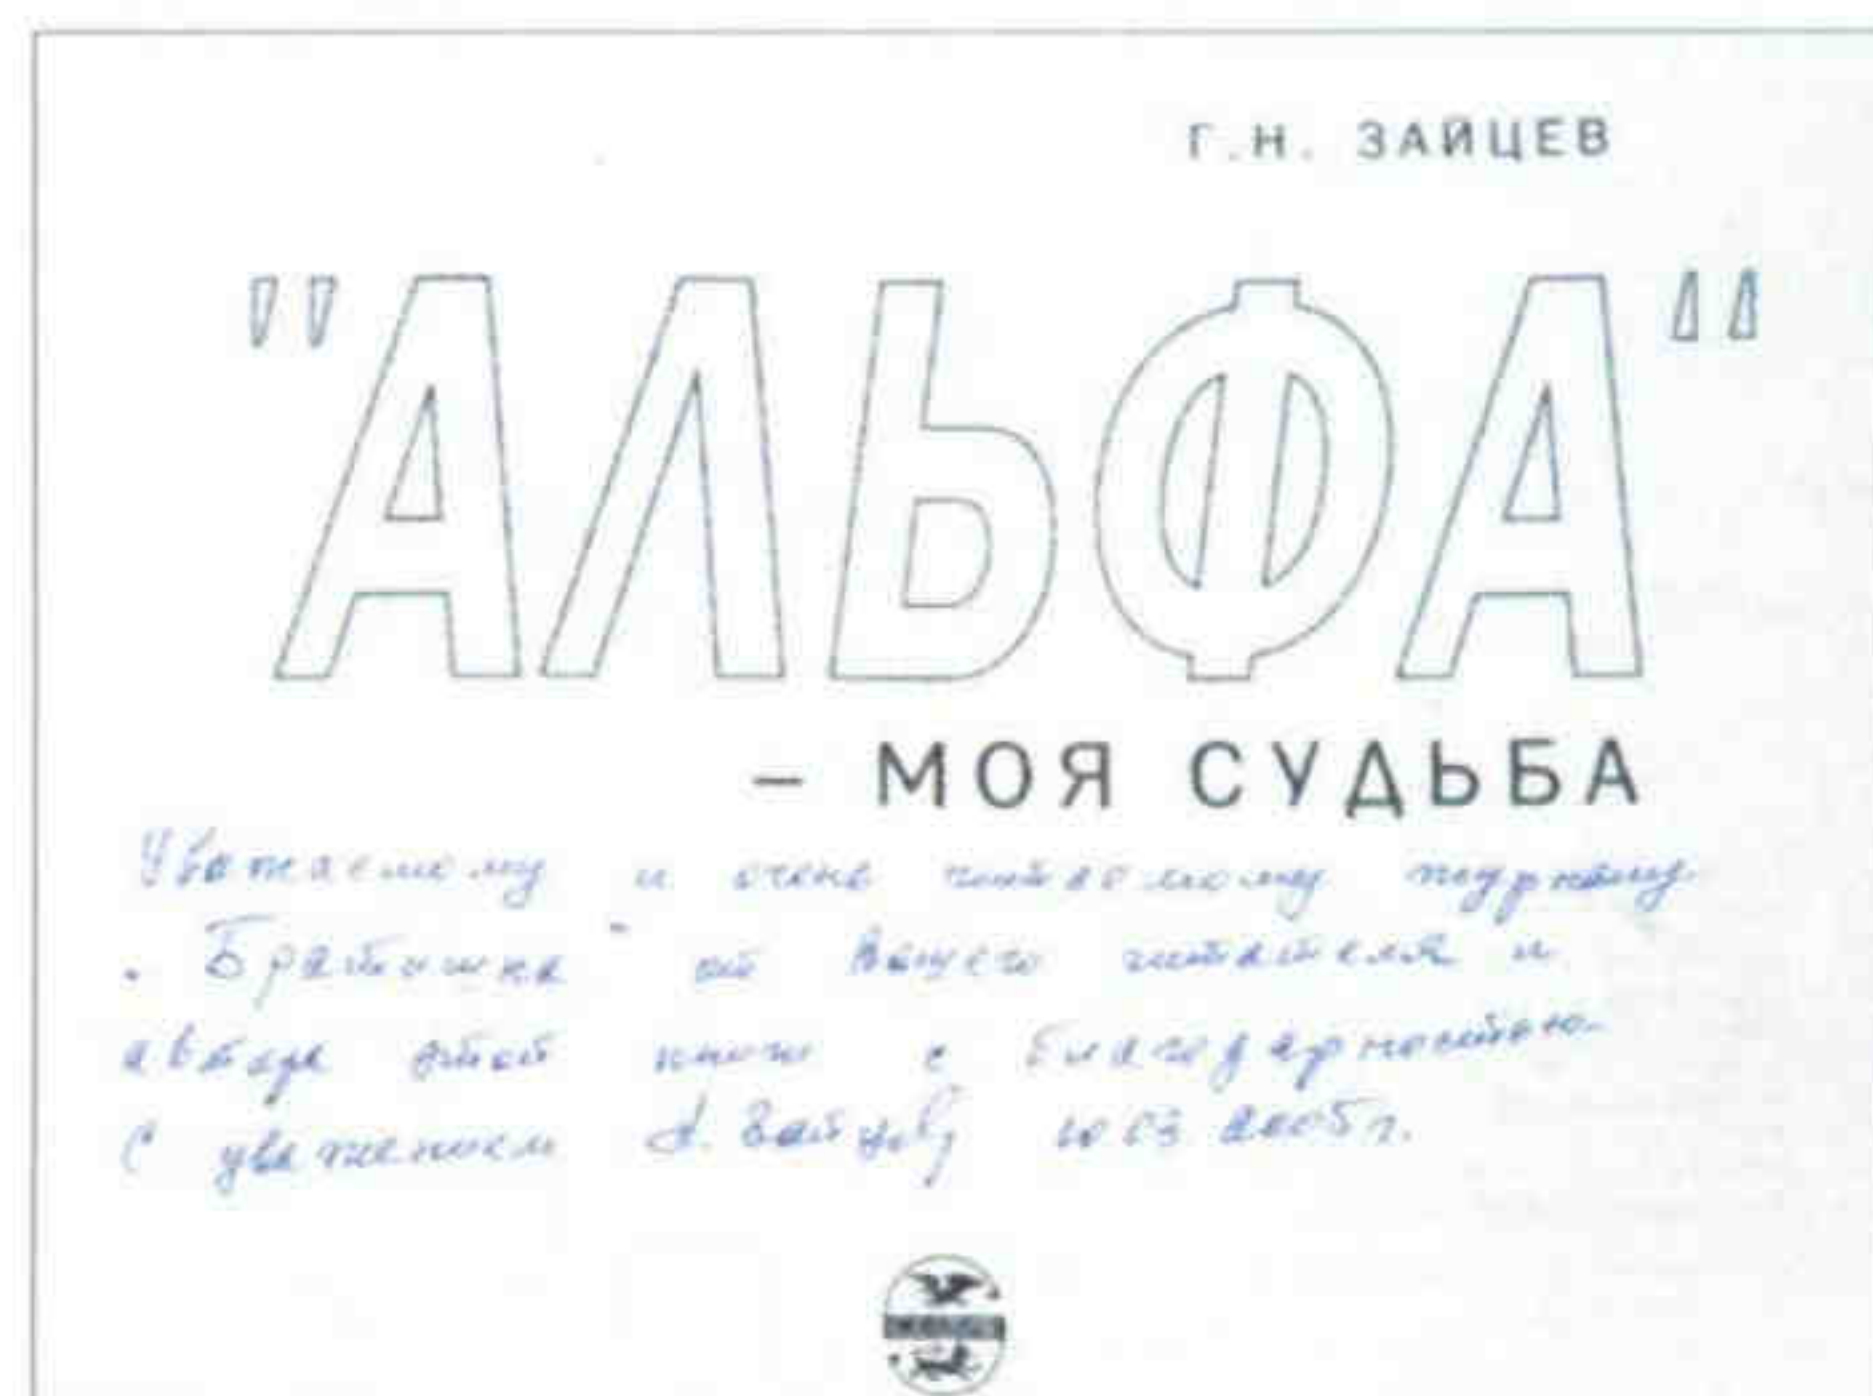 Г.Н. ЗАЙЦЕВ
"АЛЬФА"
– МОЯ СУДЬБА
Уважаемому и очень читаемому журналу
"Братишка" от вашего читателя и
автора этой книги с благодарностью.
С уважением Г. Зайцев 10 03 2005 г.